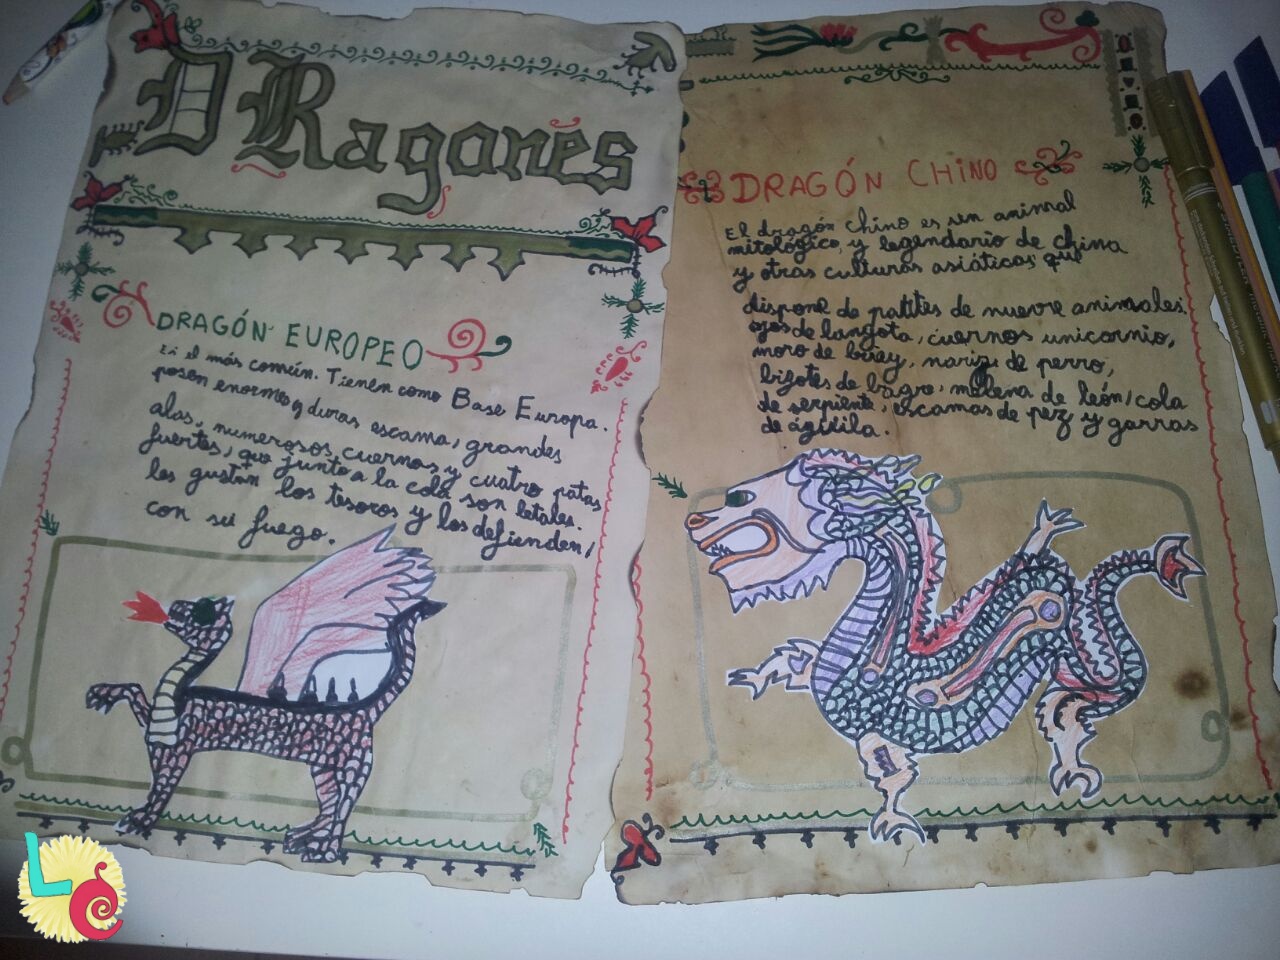 DRagones
DRAGÓN EUROPEO
Es el más común. Tienen como Base Europa.
posen enormes y duras escama, grandes
alas, numerosos cuernos y cuatro patas
fuertes, que junto a la cola son letales.
les gustan los tesoros y los defienden,
con su fuego.
DRAGÓN CHINO
El dragón chino es un animal
mitológico, y legendario de china
y otras culturas asiáticas que
dispone de de nueve animales:
ojos de langota, cuernos unicornio,
moro de buey, nariz de perro,
bigotes de bagre, melena de león, cola
de serpiente, escamas de pez y garras
de águila.
L C